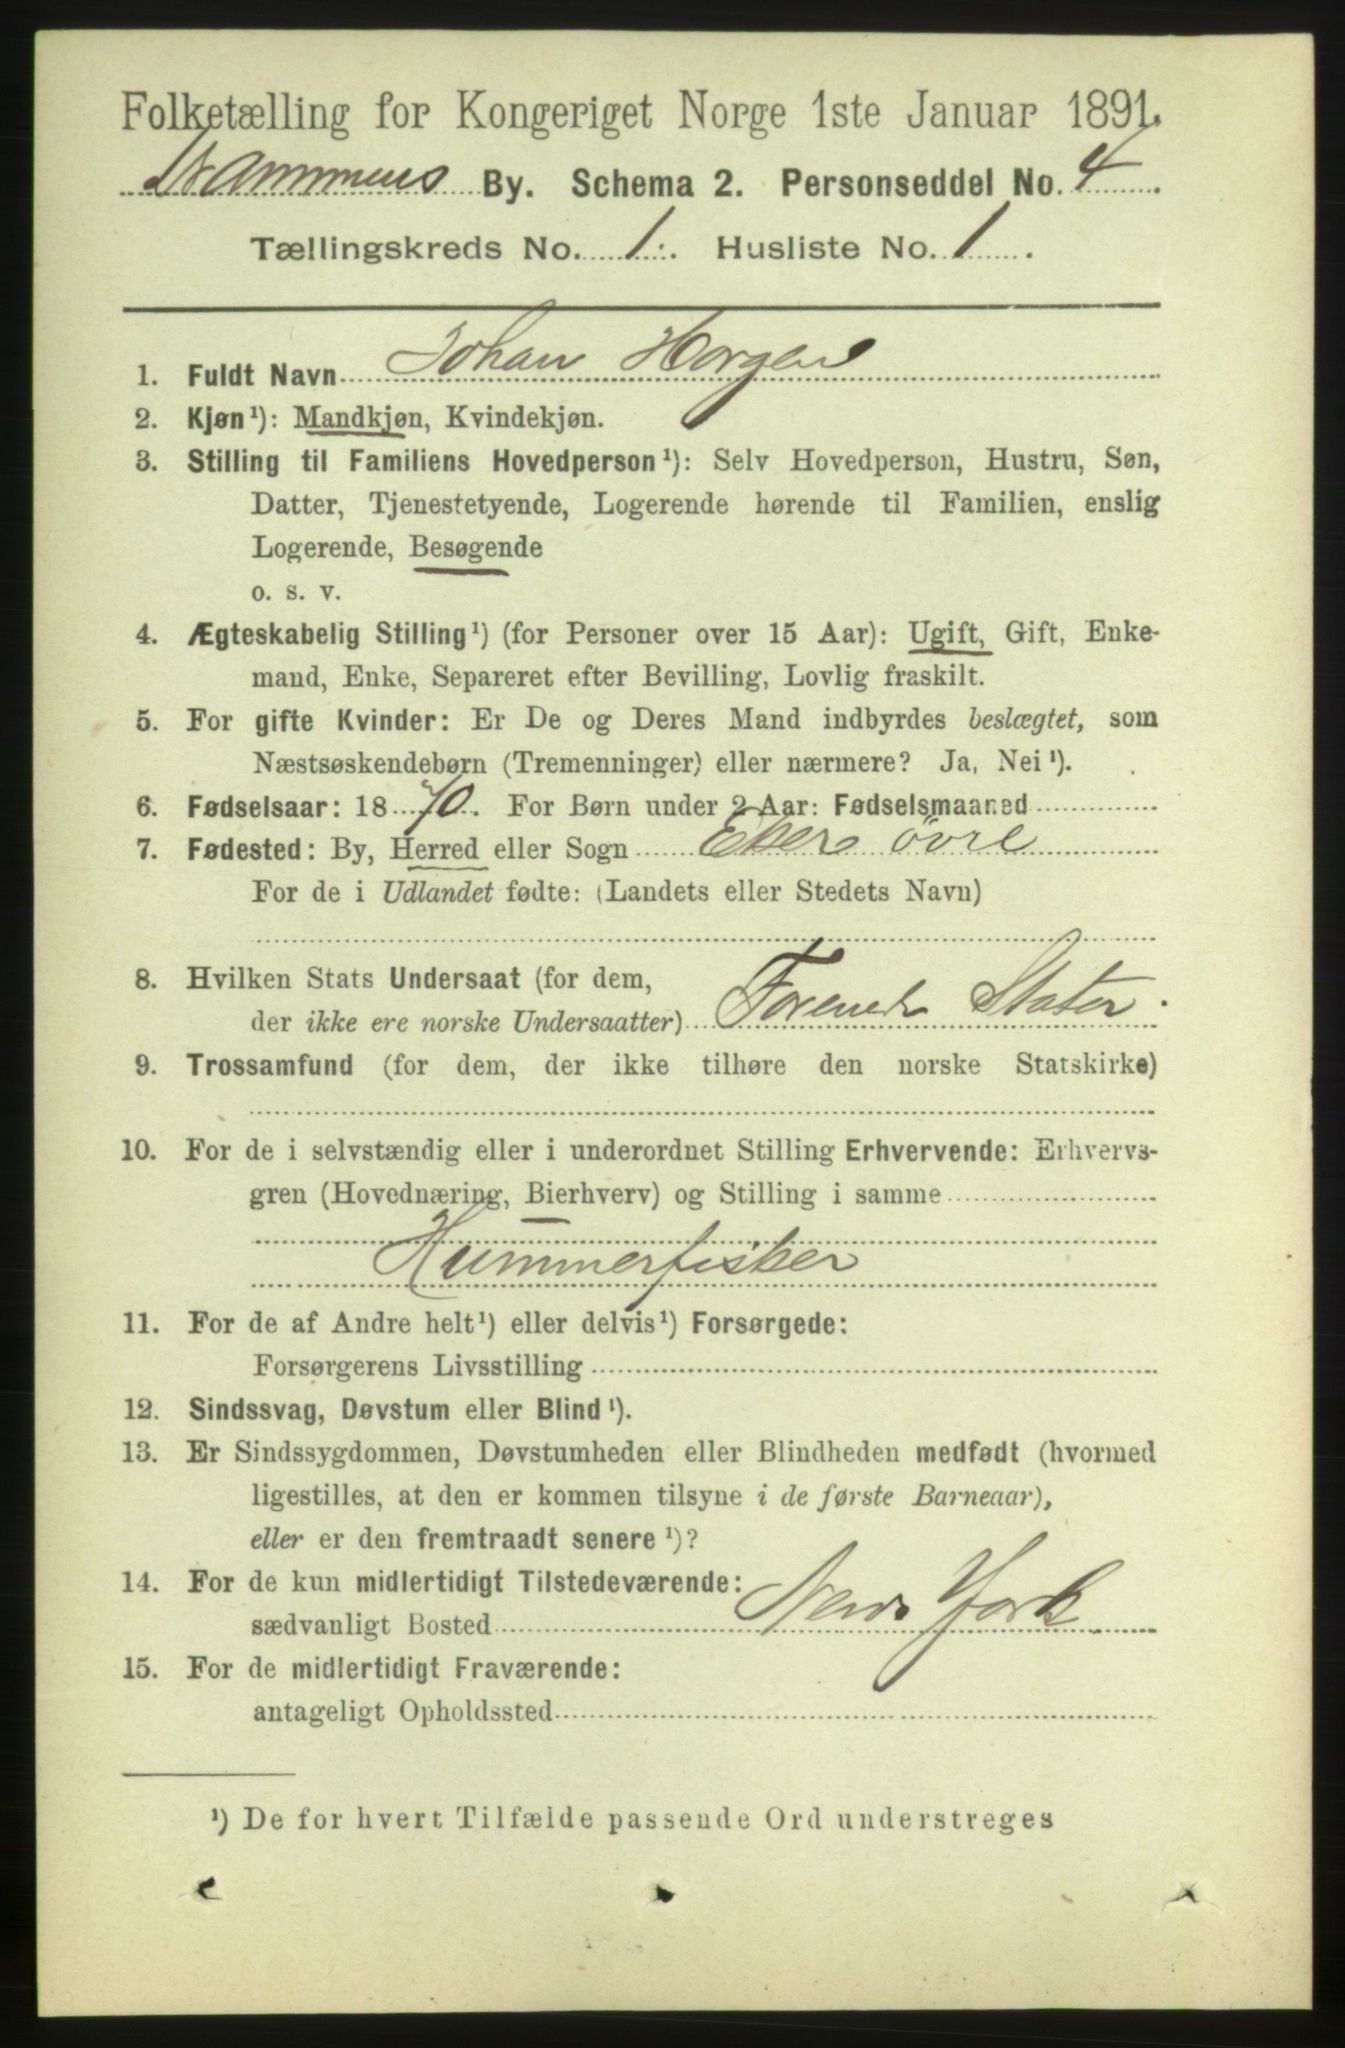 Folketælling for Kongeriget Norge 1ste Januar 1891.
Drammens By. Schema 2. Personseddel No. 4
Tællingskreds No. 1. Husliste No. 1.
1. Fuldt Navn Johan Horgen
2. Kjøn¹): Mandkjøn, Kvindekjøn.
3. Stilling til Familiens Hovedperson¹): Selv Hovedperson, Hustru, Søn,
Datter, Tjenestetyende, Logerende hørende til Familien, enslig
Logerende, Besøgende
o. s. v.
4. Ægteskabelig Stilling¹) (for Personer over 15 Aar): Ugift, Gift, Enke-
mand, Enke, Separeret efter Bevilling, Lovlig fraskilt.
5. For gifte Kvinder: Er De og Deres Mand indbyrdes beslægtet, som
Næstsøskendebørn (Tremenninger) eller nærmere? Ja, Nei¹).
6. Fødselsaar: 1870. For Børn under 2 Aar: Fødselsmaaned
7. Fødested: By, Herred eller Sogn Eker övre
For de i Udlandet fødte: (Landets eller Stedets Navn)
8. Hvilken Stats Undersaat (for dem,
der ikke ere norske Undersaatter) Forenede Stater.
9. Trossamfund (for dem, der ikke tilhøre den norske Statskirke)
10. For de i selvstændig eller i underordnet Stilling Erhvervende: Erhvervs-
gren (Hovednæring, Bierhverv) og Stilling i samme
Hummerfisker
11. For de af Andre helt¹) eller delvis¹) Forsørgede:
Forsørgerens Livsstilling
12. Sindssvag, Døvstum eller Blind¹).
13. Er Sindssygdommen, Døvstumheden eller Blindheden medfødt (hvormed
ligestilles, at den er kommen tilsyne i de første Barneaar),
eller er den fremtraadt senere¹)?
14. For de kun midlertidigt Tilstedeværende:
sædvanligt Bosted New York
15. For de midlertidigt Fraværende:
antageligt Opholdssted
¹) De for hvert Tilfælde passende Ord understreges